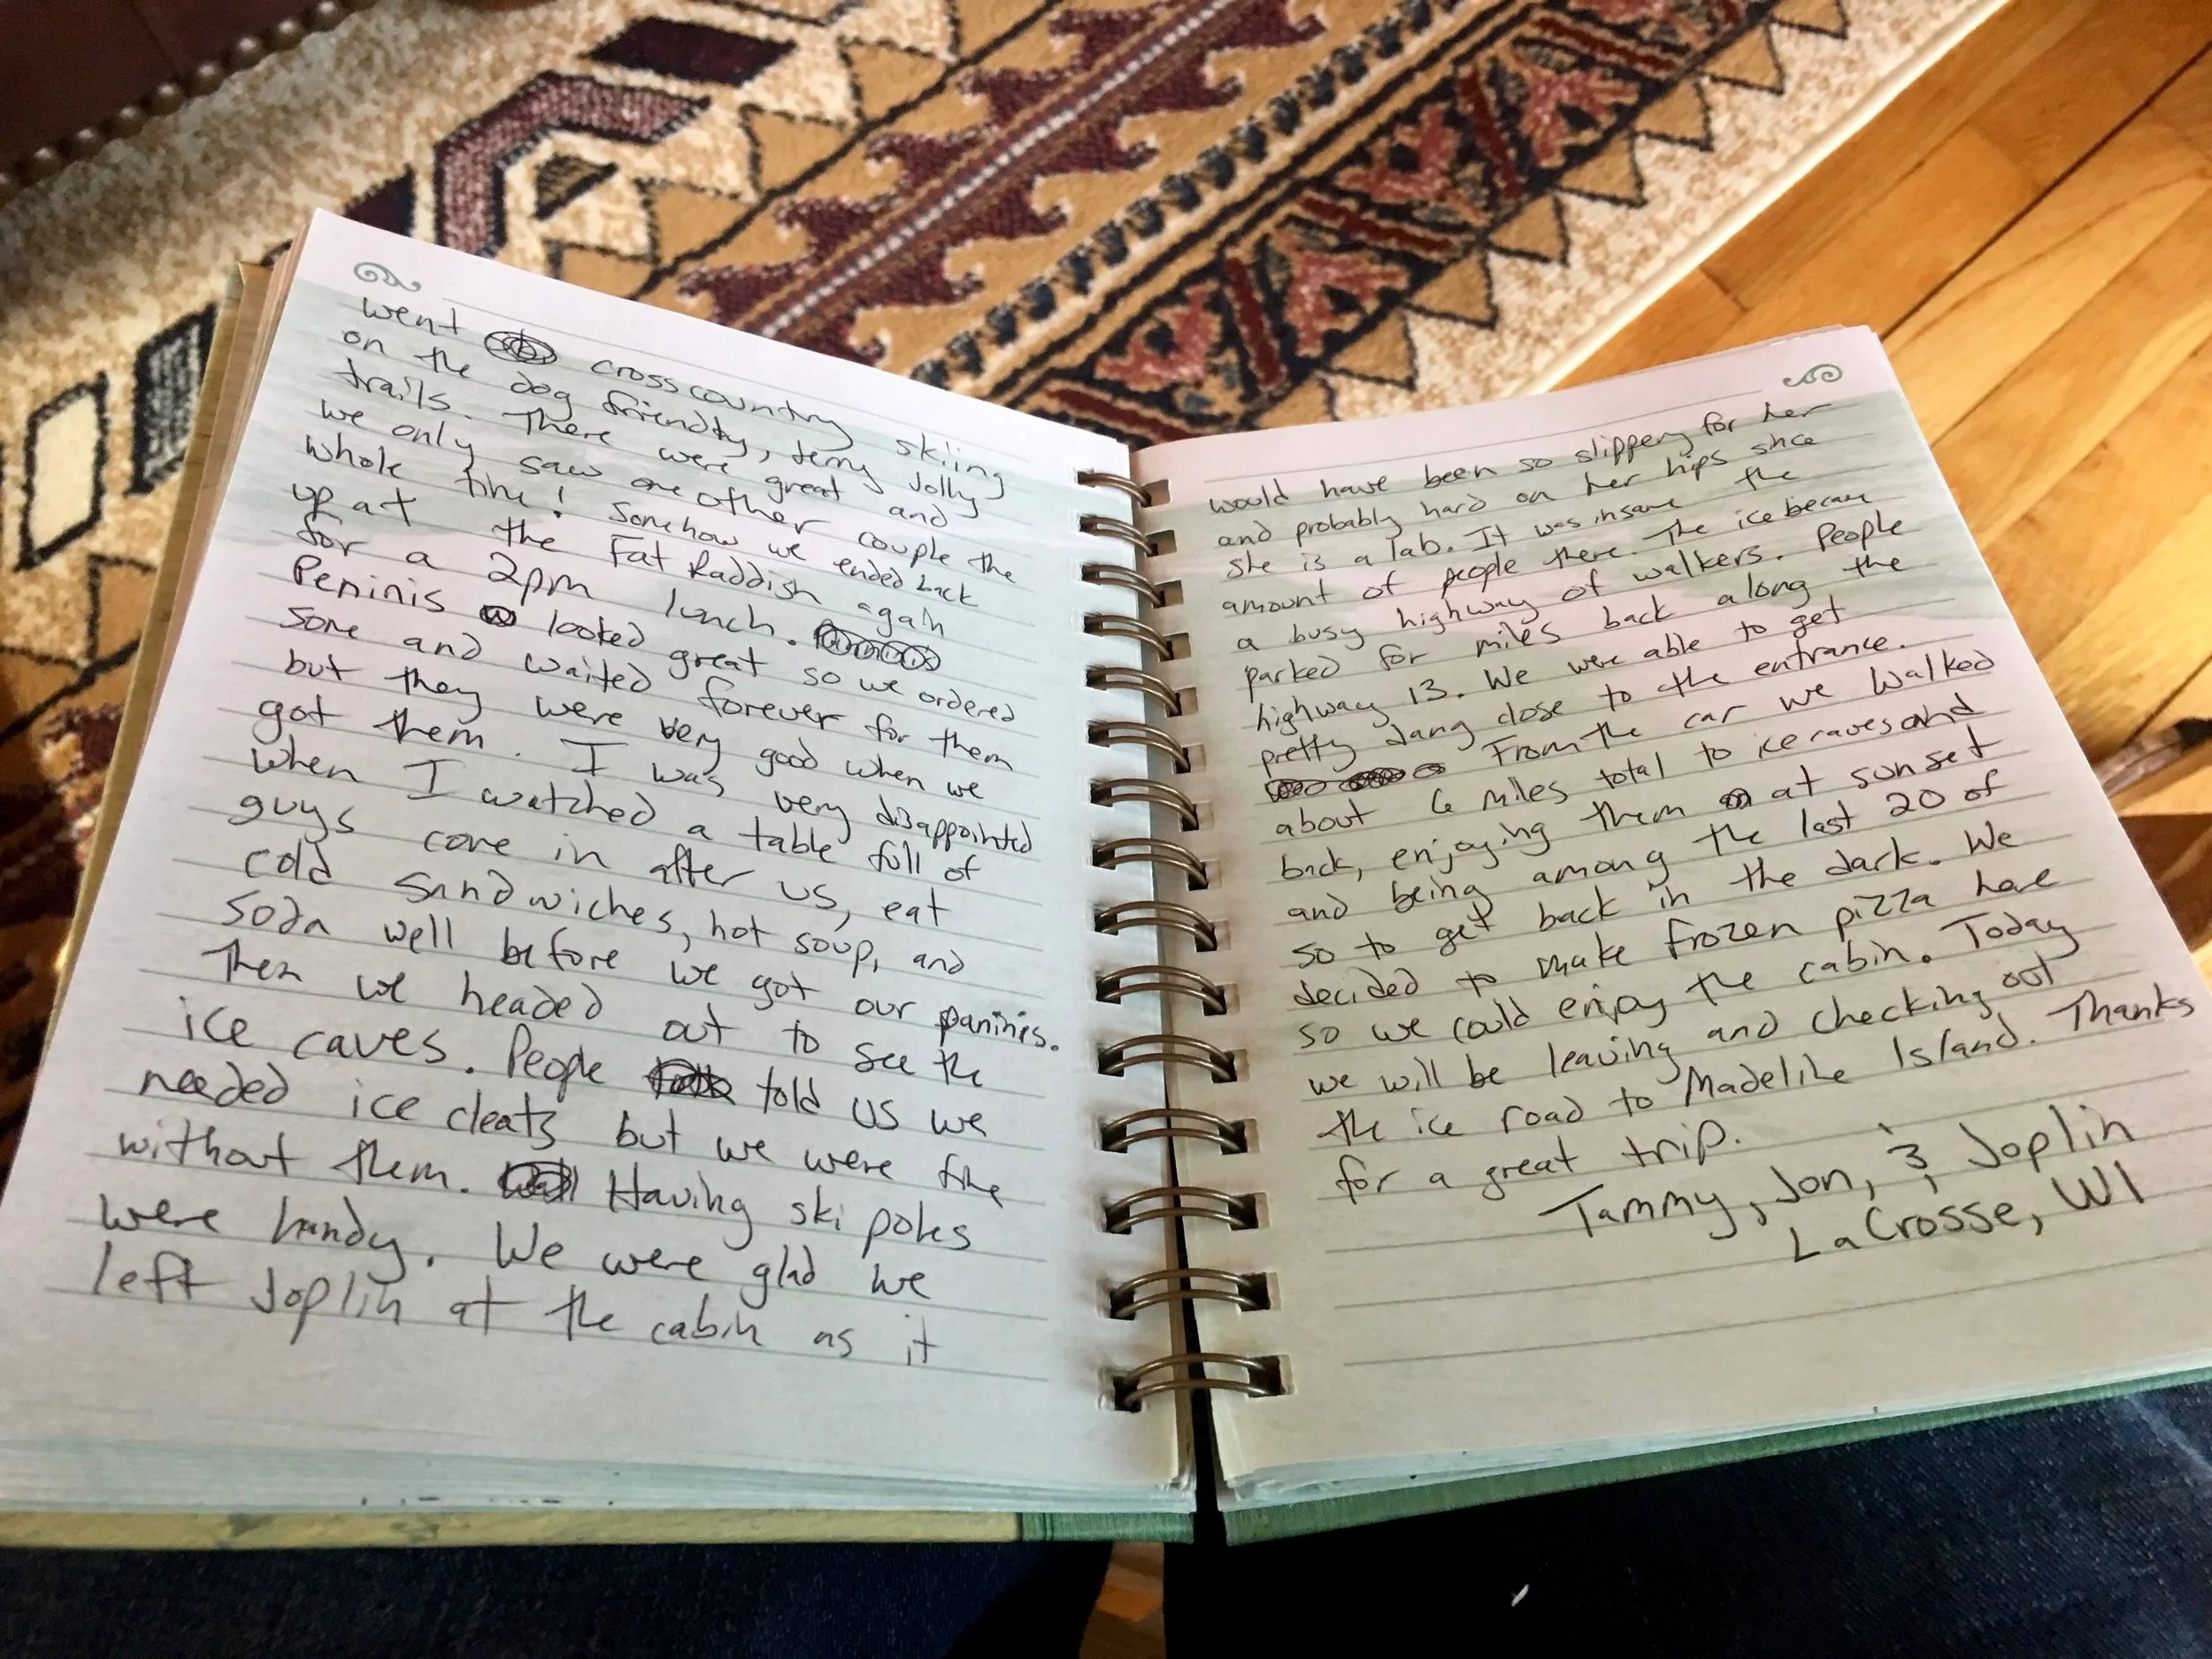 went crosscountry skiing
on the dog friendly, Jerry Jolly
trails. There were great and
we only saw one other couple the
whole time! Somehow we ended back
up at the Fat Raddish again
for a 2pm lunch.
Peninis looked great so we ordered
some and waited forever for them
but they were very good when we
got them. I was very disappointed
when I watched a table full of
guys come in after us, eat
cold sandwiches, hot soup, and
soda well before we got our paninis.
Then we headed out to see the
ice caves. People told us we
needed ice cleats but we were fine
without them. Having ski poles
were handy. We were glad we
left Joplin at the cabin as it
would have been so slippery for her
and probably hard on her hips since
she is a lab. It was insane the
amount of people there. The ice became
a busy highway of walkers. People
parked for miles back along the
highway 13. We were able to get
pretty dang close to the entrance.
From the car we walked
about 6 miles total to ice caves and
back, enjoying them at sunset
and being among the last 20 of
so to get back in the dark. We
decided to make frozen pizza here
so we could enjoy the cabin. Today
we will be leaving and checking out
the ice road to Madeline Island. Thanks
for a great trip.
Tammy, Jon, & Joplin
LaCrosse, WI